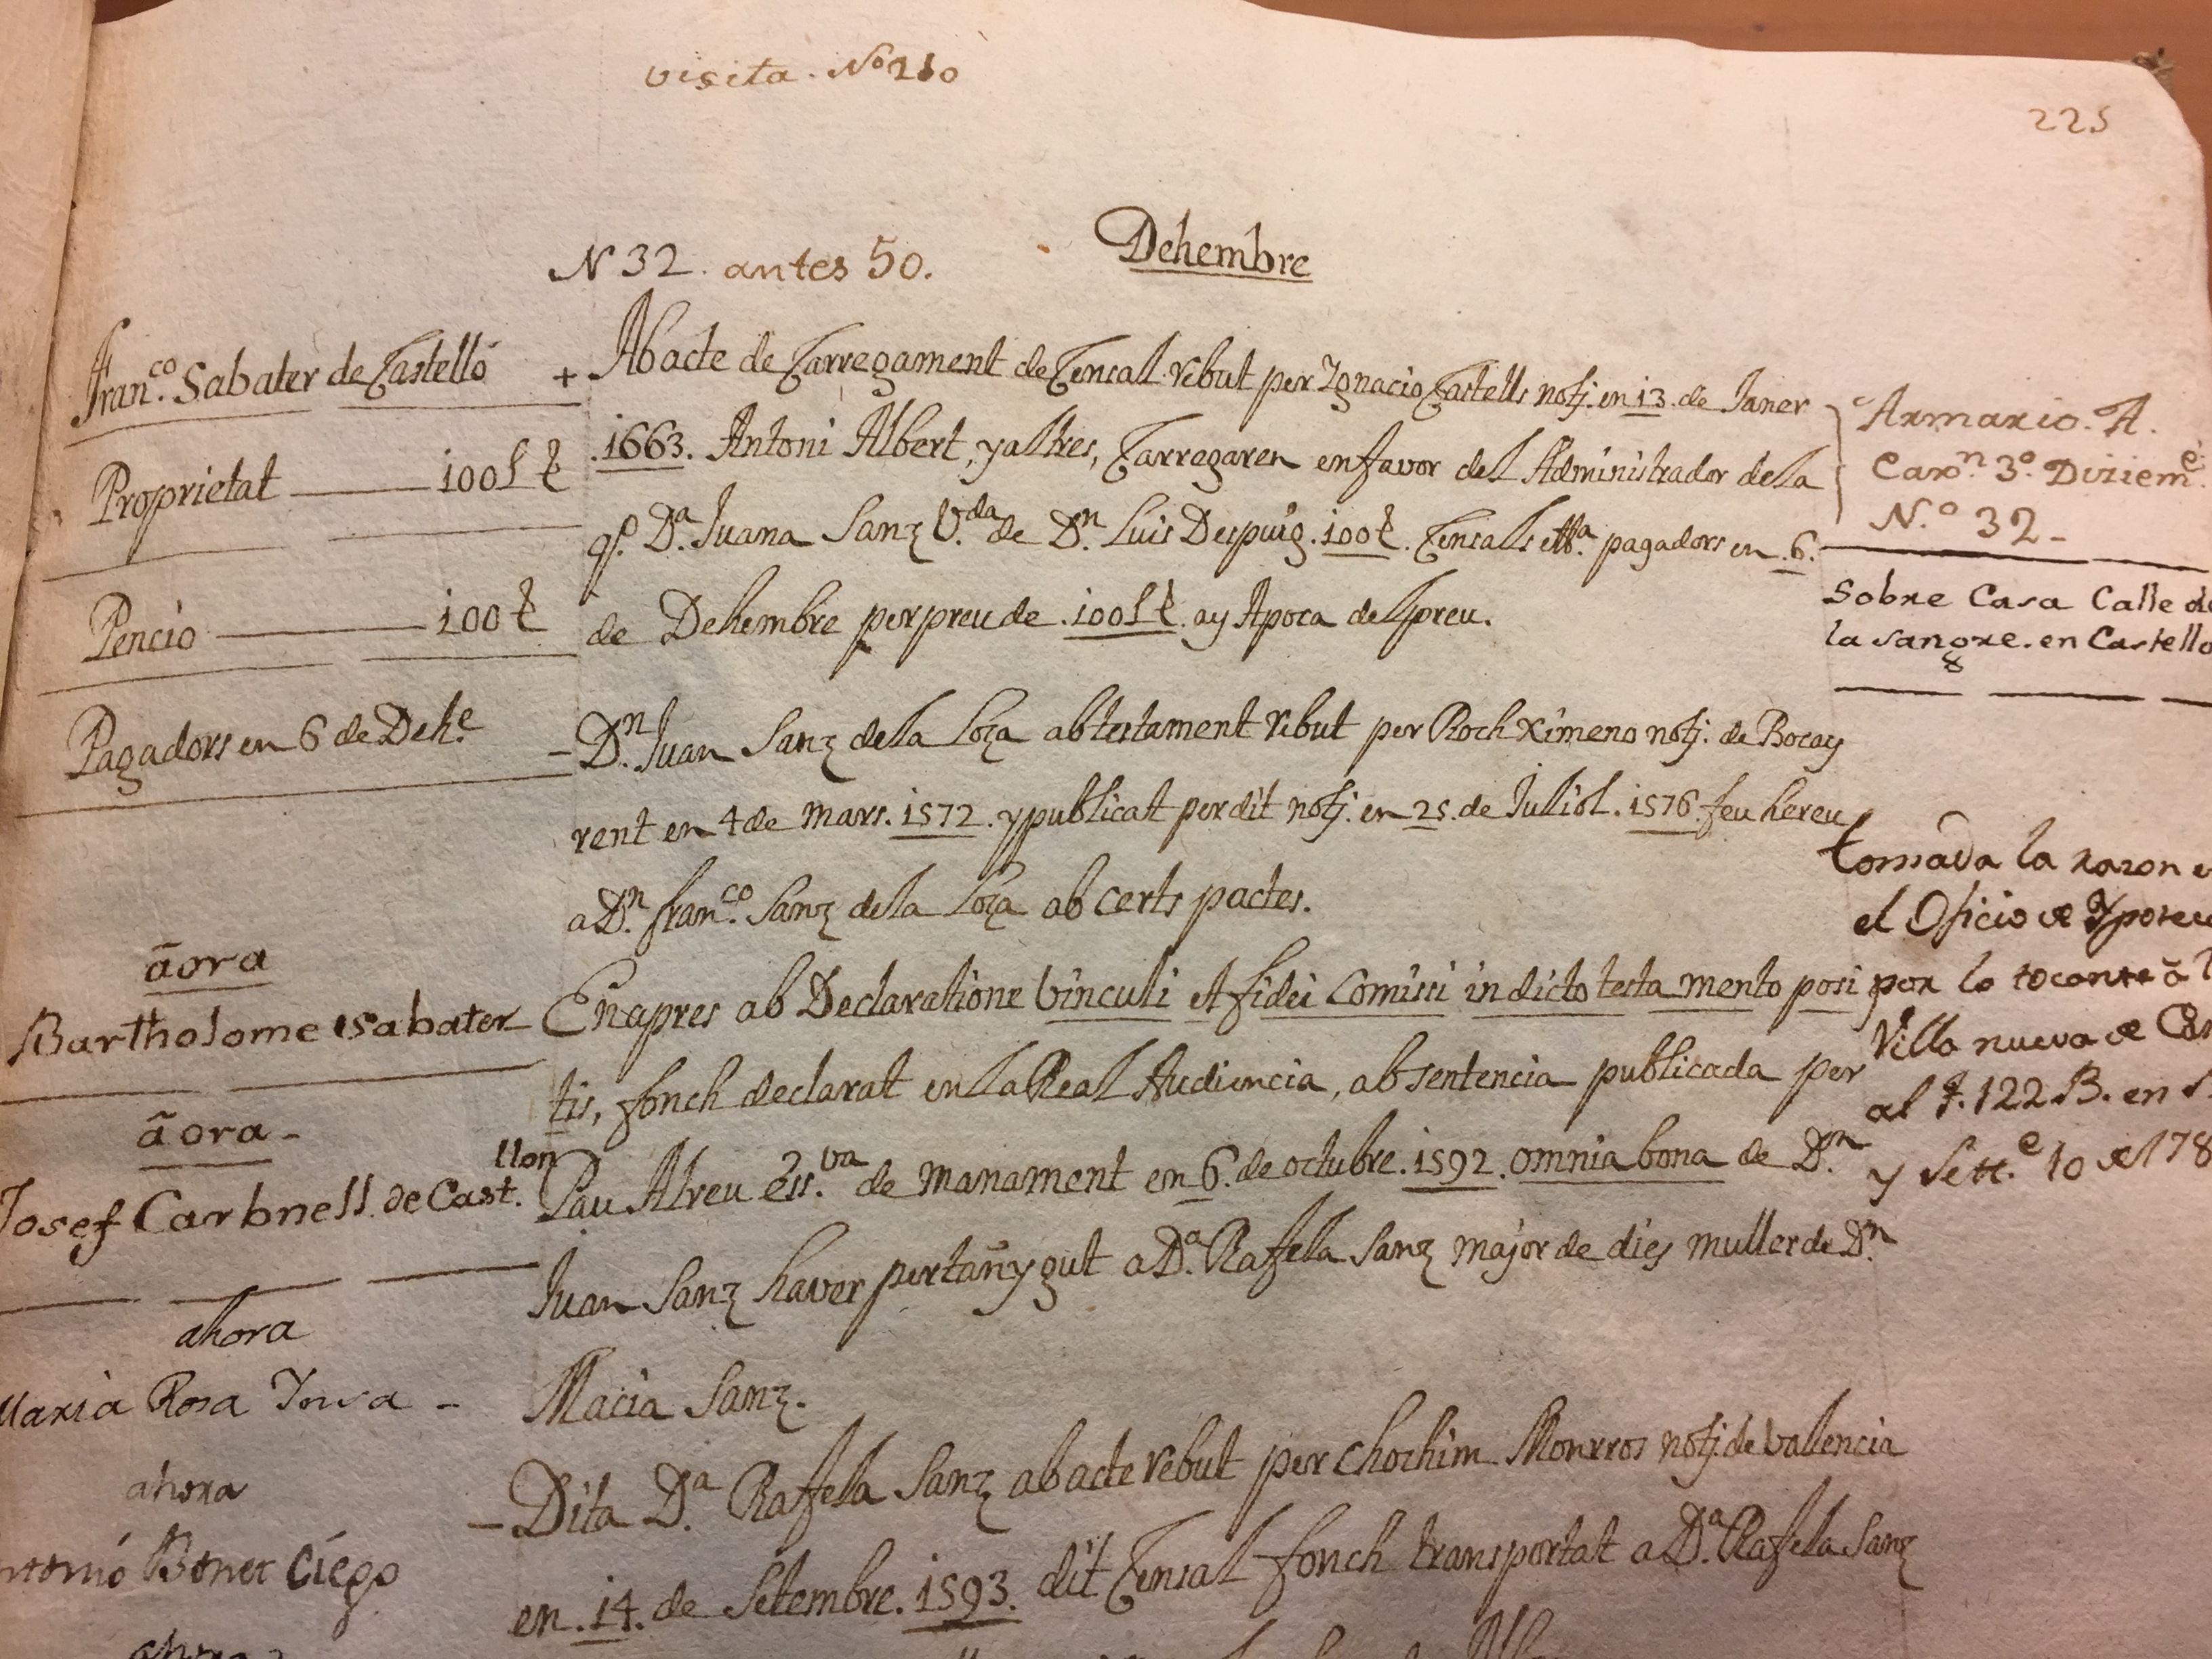 visita. Nº 210
225
N 32. antes 50.
Dehembre
Franco. Sabater de Castelló
Proprietat 100 l ŧ
Pencio 100 ŧ
Pagadors en 6 de Dehe.
āora
Bartholome Sabater
āora
Josef Carbnell de Cast.llon
ahora
Maria Rosa
ahora
Bonet Ciego
ahora
+ Ab acte de Carregament de Censal rebut per Ignacio Castells notj. en 13. de Janer
.1663. Antoni Albert, y altres, Carregaren en favor del Administrador de la
qº. Da. Juana Sanz V.da de Dn. Luis Despuig. 100 ŧ. Censals pagadors en .6.
de Dehembre per preu de .100 l ŧ. ay Apoca del preu.
- Dn. Juan Sanz de la Loza ab testament rebut per Roch Ximeno notj. de Bocay
rent en 4 de Mars. 1572. y publicat per dit notj. en 25. de Juliol. 1576. feu hereu
a Dn. Franco. Sanz de la Loza ab certs pactes.
Enapres ab Declaratione Vinculi et fidei Comissi in dicto testa mento posi
tis, fonch declarat en la Real Audiencia, ab sentencia publicada per
Pau Alreu Ess.va de manament en 6. de octubre. 1592. omnia bona de Dn.
Juan Sanz haver pertañygut a Da. Rafela Sanz major de dies muller de Dn.
Macia Sanz.
- Dita Da. Rafela Sanz ab acte rebut per Chochim Monrros notj. de Valencia
en .14. de Setembre. 1593. dit Censal fonch transportat a Da. Rafela Sanz
Armario. A.
Caxn. 3º. Dizieme.
N.º 32-
Sobre Casa Calle de
la sangre. en Castello
tomada la razon e
el Oficio de Ypotec
por lo tocante á
Villa nueva de Cas
al f. 122 B. en
y Sett.e 10 de 178